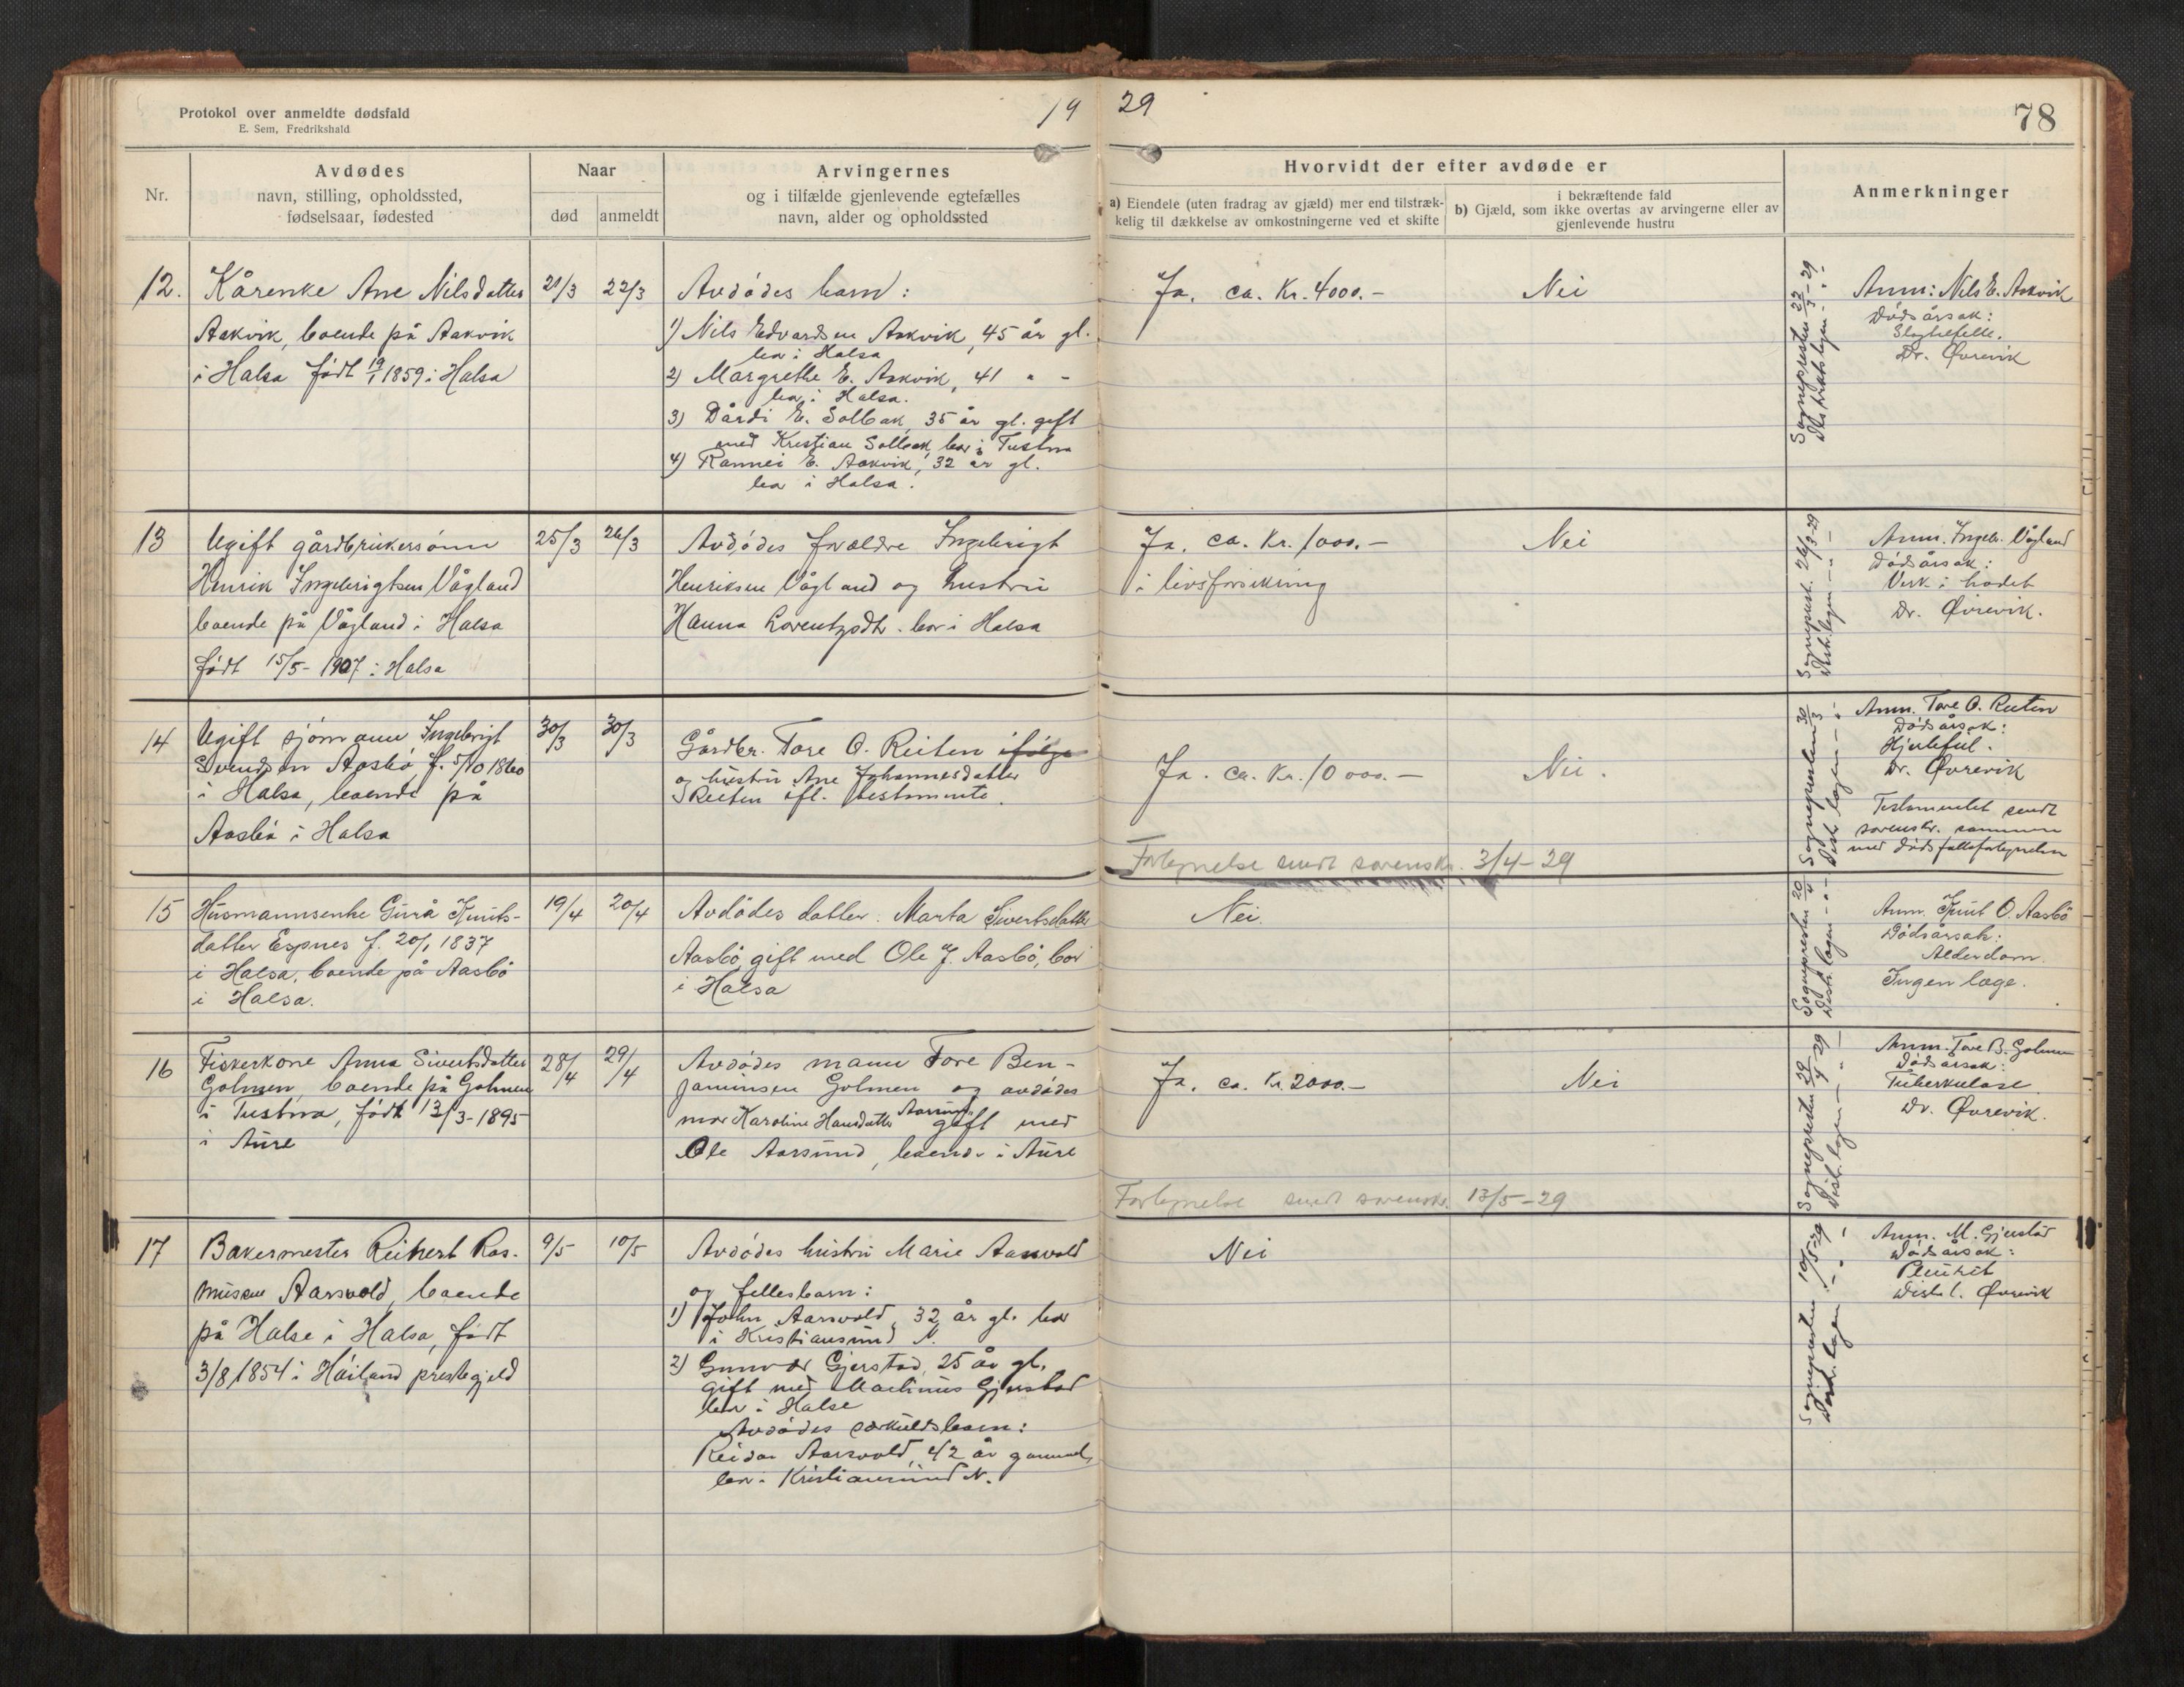 Protokol over anmeldte dødsfald
E. Sem, Fredrikshald
19 29
78
Nr.
Avdødes
navn, stilling, opholdssted,
fødselsaar, fødested
Naar
død
anmeldt
Arvingernes
og i tilfælde gjenlevende egtefælles
navn, alder og opholdssted
Hvorvidt der efter avdøde er
a) Eiendele (uten fradrag av gjæld) mer end tilstræk-
kelig til dækkelse av omkostningerne ved et skifte
i bekræftende fald
b) Gjæld, som ikke overtas av arvingerne eller av
gjenlevende hustru
Anmerkninger
12.
Kårenke Ane Nilsdatter
Aakvik, boende på Aakvik
i Halsa født 19/1 1859 i Halsa
21/3
22/3
Avdødes barn:
1) Nils Edvardsen Aakvik, 45 år gl.
bor i Halsa
2) Margrethe E. Aakvik, 41 " -
bor i Halsa.
3) Dårdi E. Solbak, 35 år gl. gift
med Kristian Solbak, bor i Tustna
4) Rannei E. Aakvik, 32 år gl.
bor i Halsa.
Ja. ca. Kr. 4000.-
Nei
Sognepresten 22/3-29
Distriktslægen - " -
Anm: Nils E. Aakvik
Dødsårsak:
Slagtilfelle.
Dr. Øvrevik
13
Ugift gårdbrukersønn
Henrik Ingebrigtsen Vågland
boende på Vågland i Halsa
født 15/5-1907 i Halsa
25/3
26/3
Avdødes forældre Ingebrigt
Henriksen Vågland og hustru
Hanna Lorentzdtr. bor i Halsa
Ja. ca. Kr. 1000.-
i livsforsikring
Nei
Sogneprest. 26/3-29
Distr.lægen - " -
Anm. Ingebr. Vågland
Dødsårsak:
Verk i hodet
Dr. Øvrevik.
14
Ugift sjømann Ingebrigt
Svendsen Aasbø f. 5/10 1860
i Halsa, boende på
Aasbø i Halsa
30/3
30/3
Gårdbr. Tore O. Reiten ifølge
og hustru Ane Johannesdatter
Reiten ifl. testamente.
Ja. ca. Kr. 10 000.-
Nei.
Forlegnelse sendt sorenskr. 3/4-29
Sognepresten 30/3
Distr. lægen - " -
Anm. Tore O. Reiten
Dødsårsak:
Hjertefeil.
Dr. Øvrevik
Testamentet sendt
sorenskr. sammen
med dødsfallsforlegnelsen
15
Husmannsenke Gurå Knuts-
datter Espnes f. 20/1 1837
i Halsa, boende på Aasbø
i Halsa.
19/4
20/4
Avdødes datter. Marta Sivertsdatter
Aasbø gift med Ole J. Aasbø, bor
i Halsa
Nei.
Sognepresten 20/4
Distr. lægen - " -
Anm. Knut O. Aasbø
Dødsårsak:
Alderdom.
Ingen læge.
16
Fiskerkone Anna Sivertsdatter
Golmen, boende på Golmen
i Tustna, født 13/3-1895
i Aure
28/4
29/4
Avdødes mann Tore Ben-
jaminsen Golmen og avdødes
mor Karoline Hansdatter Aarsund gift med
Ole Aarsund, boende i Aure
Ja. ca. Kr. 2000.-
Nei
Forlegnelse sendt sorenskr. 13/5-29
Sognepresten 29/4-29
Distr. lægen - " -
Anm. Tore B. Golmen
Dødsårsak:
Tuberkulose
Dr. Øvrevik.
17
Bakermester Reinert Ras-
mussen Aarsvold, boende
på Halse i Halsa, født
3/8 1854 i Høiland prestegjeld
9/5
10/5
Avdødes hustru Marie Aarsvold
og fellesbarn:
1) John Aarsvold, 32 år gl. bor
i Kristiansund N.
2) Gunvor Gjerstad, 25 år gl.
gift med Martinus Gjerstad
bor i Halse
Avdødes særkuldsbarn:
Reidar Aarsvold, 42 år gammel,
bor i Kristiansund N.
Nei
Sognepresten 10/5-29
Distr. lægen - " -
Anm. M. Gjerstad
Dødsårsak:
Pleurit
Distr.l. Øvrevik